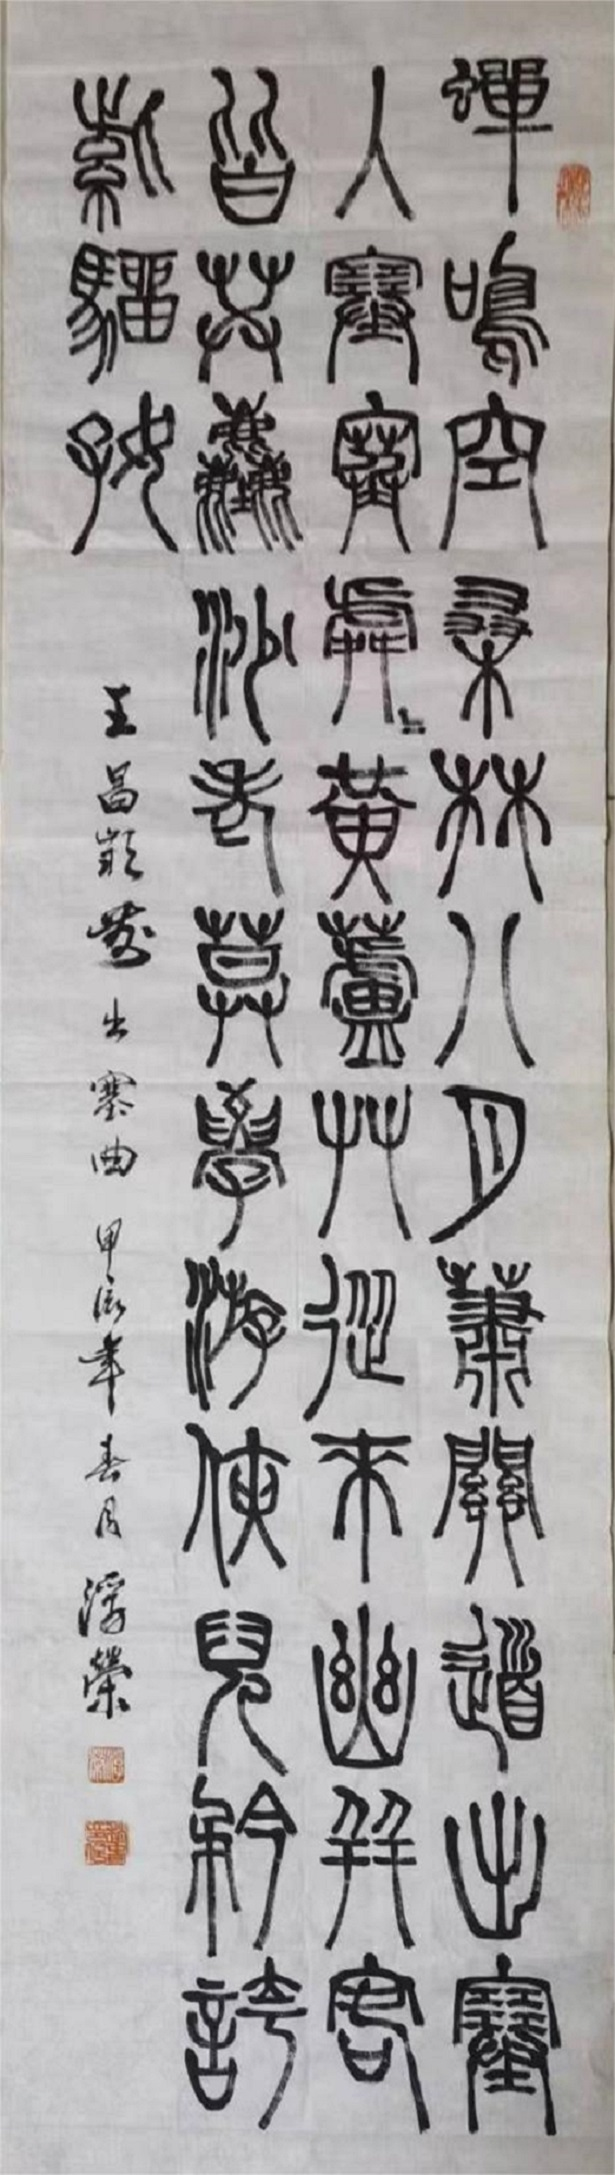 蟬鳴空桑林八月蕭關道出塞
入塞寒處〻黃蘆艸從來幽并客
皆共塵沙老莫學游俠兒矜誇
紫騮好
王昌齡 出塞曲 甲辰年 春月 榮